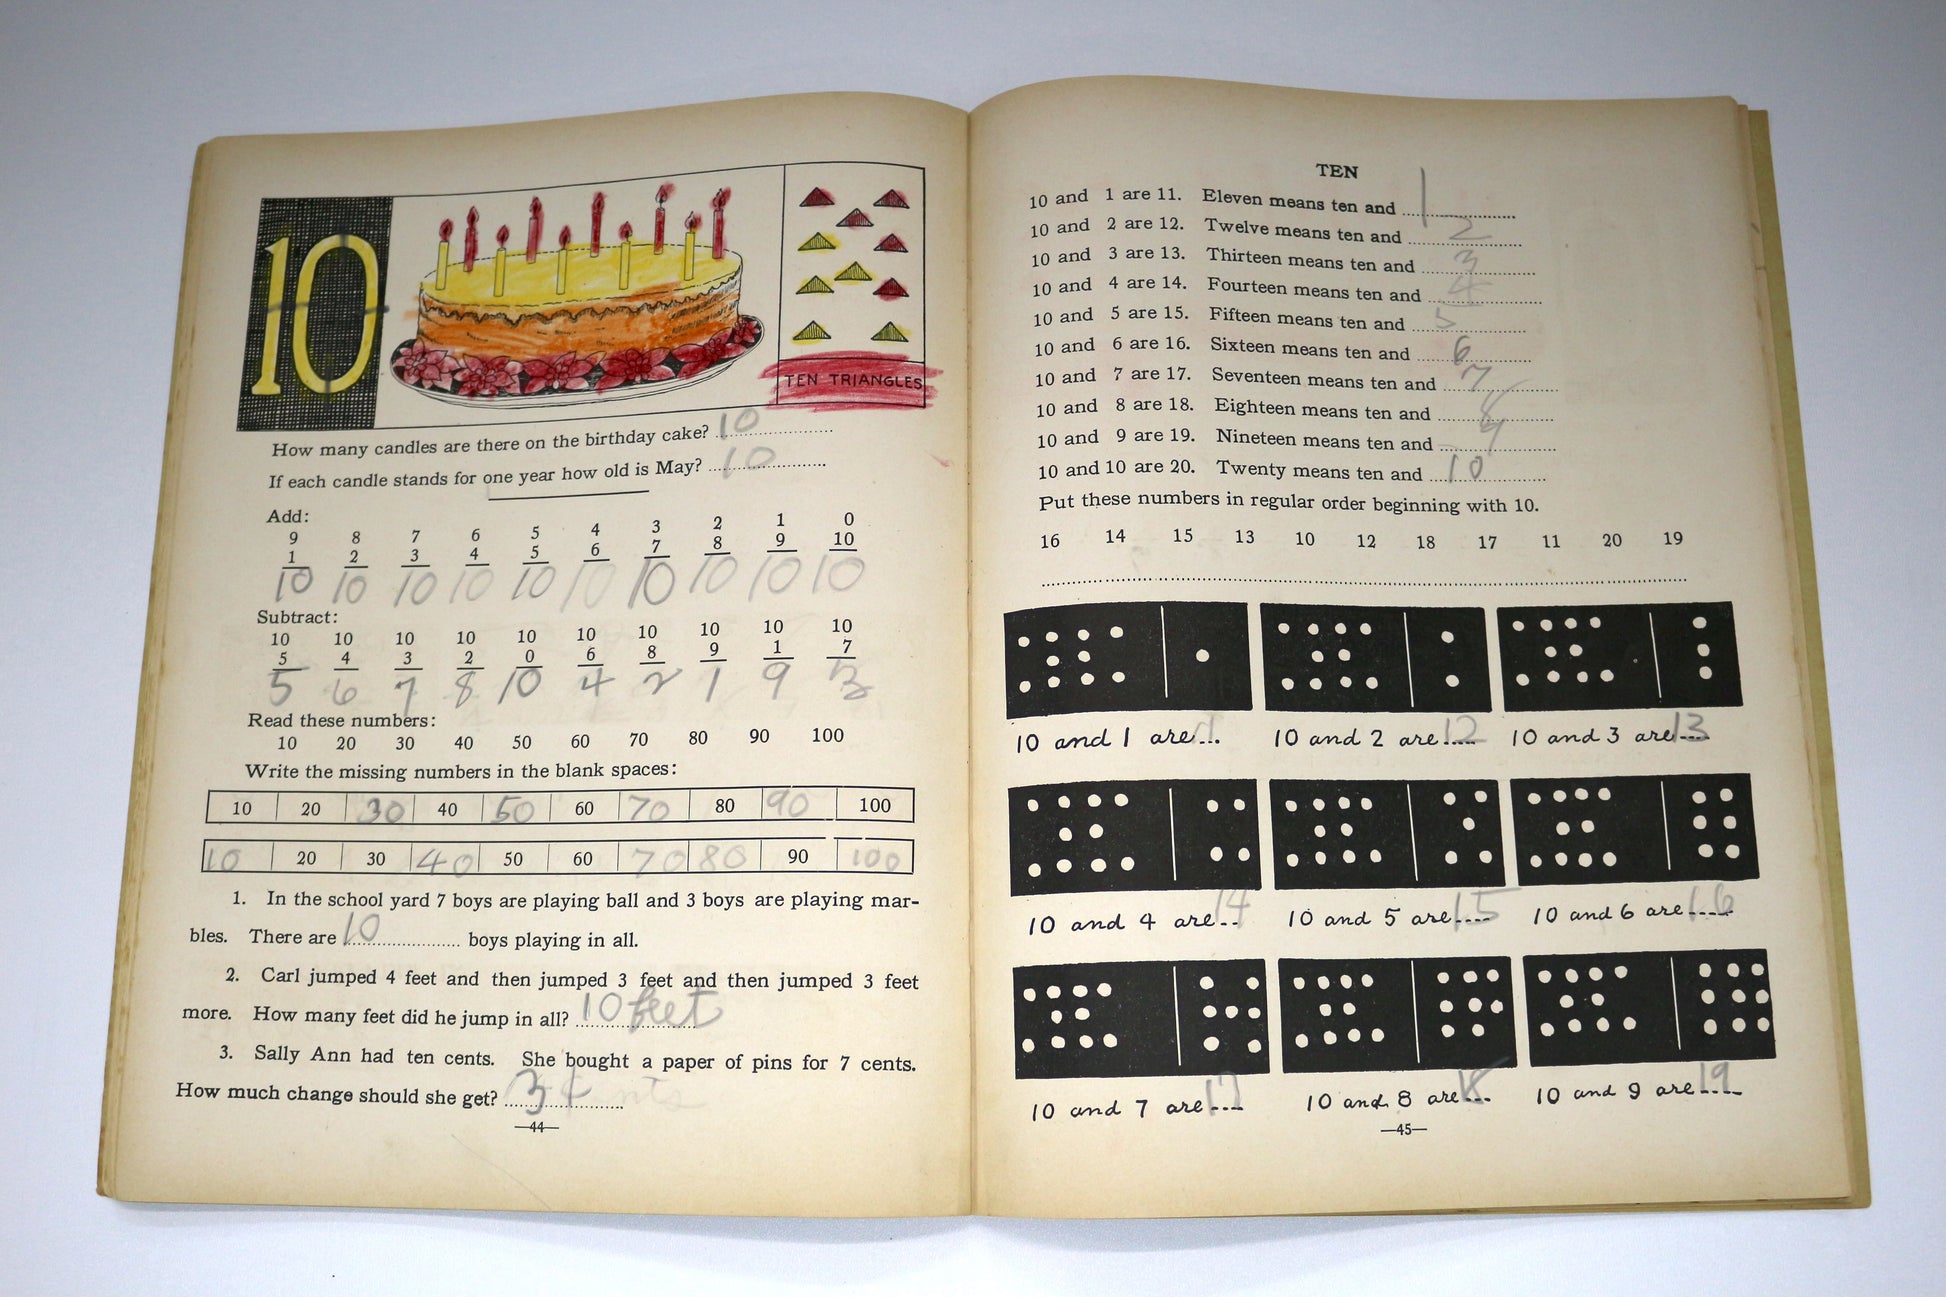 10
TEN TRIANGLES
How many candles are there on the birthday cake? 10
If each candle stands for one year how old is May? 10
Add:
9 8 7 6 5 4 3 2 1 0
1 2 3 4 5 6 7 8 9 10
10 10 10 10 10 10 10 10 10 10
Subtract:
10 10 10 10 10 10 10 10 10 10
5 4 3 2 0 6 8 9 1 7
5 6 7 8 10 4 2 1 9 3
Read these numbers:
10 20 30 40 50 60 70 80 90 100
Write the missing numbers in the blank spaces:
10 20 30 40 50 60 70 80 90 100
10 20 30 40 50 60 70 80 90 100
1. In the school yard 7 boys are playing ball and 3 boys are playing mar-
bles. There are 10 boys playing in all.
2. Carl jumped 4 feet and then jumped 3 feet and then jumped 3 feet
more. How many feet did he jump in all? 10 feet
3. Sally Ann had ten cents. She bought a paper of pins for 7 cents.
How much change should she get? 3¢
—44—
TEN
10 and 1 are 11. Eleven means ten and 1
10 and 2 are 12. Twelve means ten and 2
10 and 3 are 13. Thirteen means ten and 3
10 and 4 are 14. Fourteen means ten and 4
10 and 5 are 15. Fifteen means ten and 5
10 and 6 are 16. Sixteen means ten and 6
10 and 7 are 17. Seventeen means ten and 7
10 and 8 are 18. Eighteen means ten and 8
10 and 9 are 19. Nineteen means ten and 9
10 and 10 are 20. Twenty means ten and 10
Put these numbers in regular order beginning with 10.
16 14 15 13 10 12 18 17 11 20 19
10 and 1 are 11 10 and 2 are 12 10 and 3 are 13
10 and 4 are 14 10 and 5 are 15 10 and 6 are 16
10 and 7 are 17 10 and 8 are 18 10 and 9 are 19
—45—